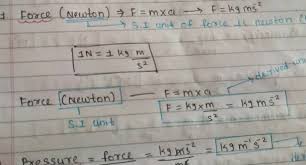 Force (Newton) → F = m×a → F = kg ms²
→ S.I unit of force is newton
1N = 1 kg m/s²
Force (Newton) — F = m×a → derived
S.I unit F = kg×m/s² = kg ms²
Pressure = force = kg ms² = kg m⁻¹s⁻²